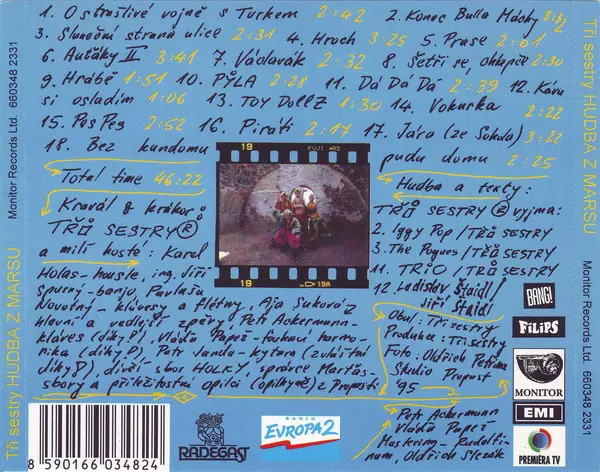 1. O strašlivé vojně s Turkem 2:42 2. Konec Bulla Máchy
3. Sluneční strana ulice 2:31 4. Hroch 3:25 5. Prase 2:01
6. Auťáky II 3:41 7. Václavák 2:32 8. Šetři se, chlapče 2:30
9. Hrábě 1:51 10. PÝLA 2:28 11. Dá Dá Dá 2:39 12. Kávu
si osladím 1:06 13. TOY DOLLZ 1:30 14. Vokurka 2:22
15. Pes Peg 2:52 16. Piráti 2:17 17. Jára (ze Sokola) 3:22
18. Bez kundomu pudu domu 2:25
Total time 46:22
Kravál & krákor
TŘI SESTRY ®
a milí hosté: Karel
Holas-housle, ing. Jiří
Spurný-banjo, Pavlusu
Novotný-klávesy a flétny, Aja Suková z
hlavní a vedlejší zpěvy, Petr Ackermann-
kláves (díky!), Vláďa Papež-foukací harmo-
nika (díky!), Petr Janda-kytara (zvláštní
díky!), dívčí sbor HOLKY, správce Martas-
sbory a příležitostní opilci (opilkyně) z Propasti
19 FUJI RD
19 19A
Hudba a texty:
TŘI SESTRY ® vyjma:
2. Iggy Pop / TŘI SESTRY
3. The Pogues / TŘI SESTRY
11 TRIO / TŘI SESTRY
12 Ladislav Štaidl /
Jiří Štaidl
Obal: Tři sestry
Produkce: Tři sestry
Foto: Oldřich
Studio Propast
95
Petr Ackermann
Vláďa Papež
Mastering- Rudolfi-
num, Oldřich Slezák
BANG!
FILIPS
MONITOR
EMI
PREMIÉRA TV
8 590166 034824
RADEGAST
RADIO
EVROPA 2
Tři sestry HUDBA Z MARSU Monitor Records Ltd. 660348 2331
Tři sestry HUDBA Z MARSU Monitor Records Ltd. 660348 2331